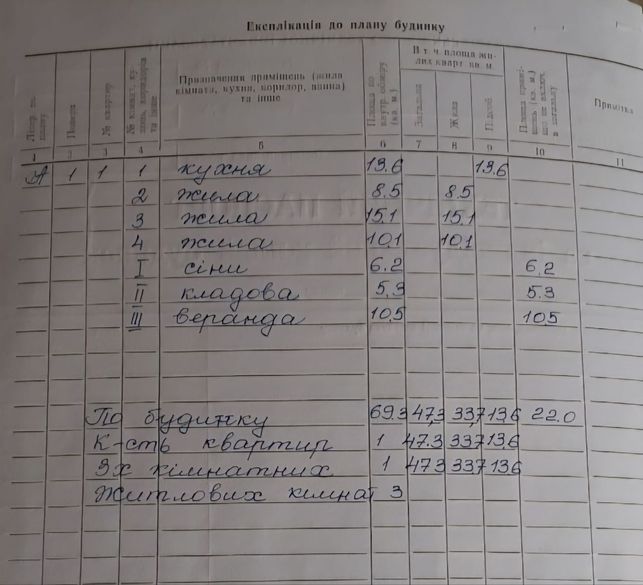 Експлікація до плану будинку
Літер. по плану
Поверх
№ квартир
№ кімнат, ку-
хонь, коридорів
та інше
Призначення приміщень (жила
кімната, кухня, коридор, ванна)
та інше
Площа по
внутр. обміру
(кв. м.)
В т. ч. площа жи-
лих кварт. кв. м
Загальна
Жила
Підсоб.
Площа примі-
щень (кв. м.),
що не включ.
в загальну
Примітка
1 2 3 4 5 6 7 8 9 10 11
А 1 1 1 кухня 13.6 13.6
2 жила 8.5 8.5
3 жила 15.1 15.1
4 жила 10.1 10.1
I сіни 6.2 6.2
II кладова 5.3 5.3
III веранда 10.5 10.5
По будинку 69.3 47.3 33.7 13.6 22.0
К-сть квартир 1 47.3 33.7 13.6
3х кімнатних 1 47.3 33.7 13.6
Житлових кімнат 3